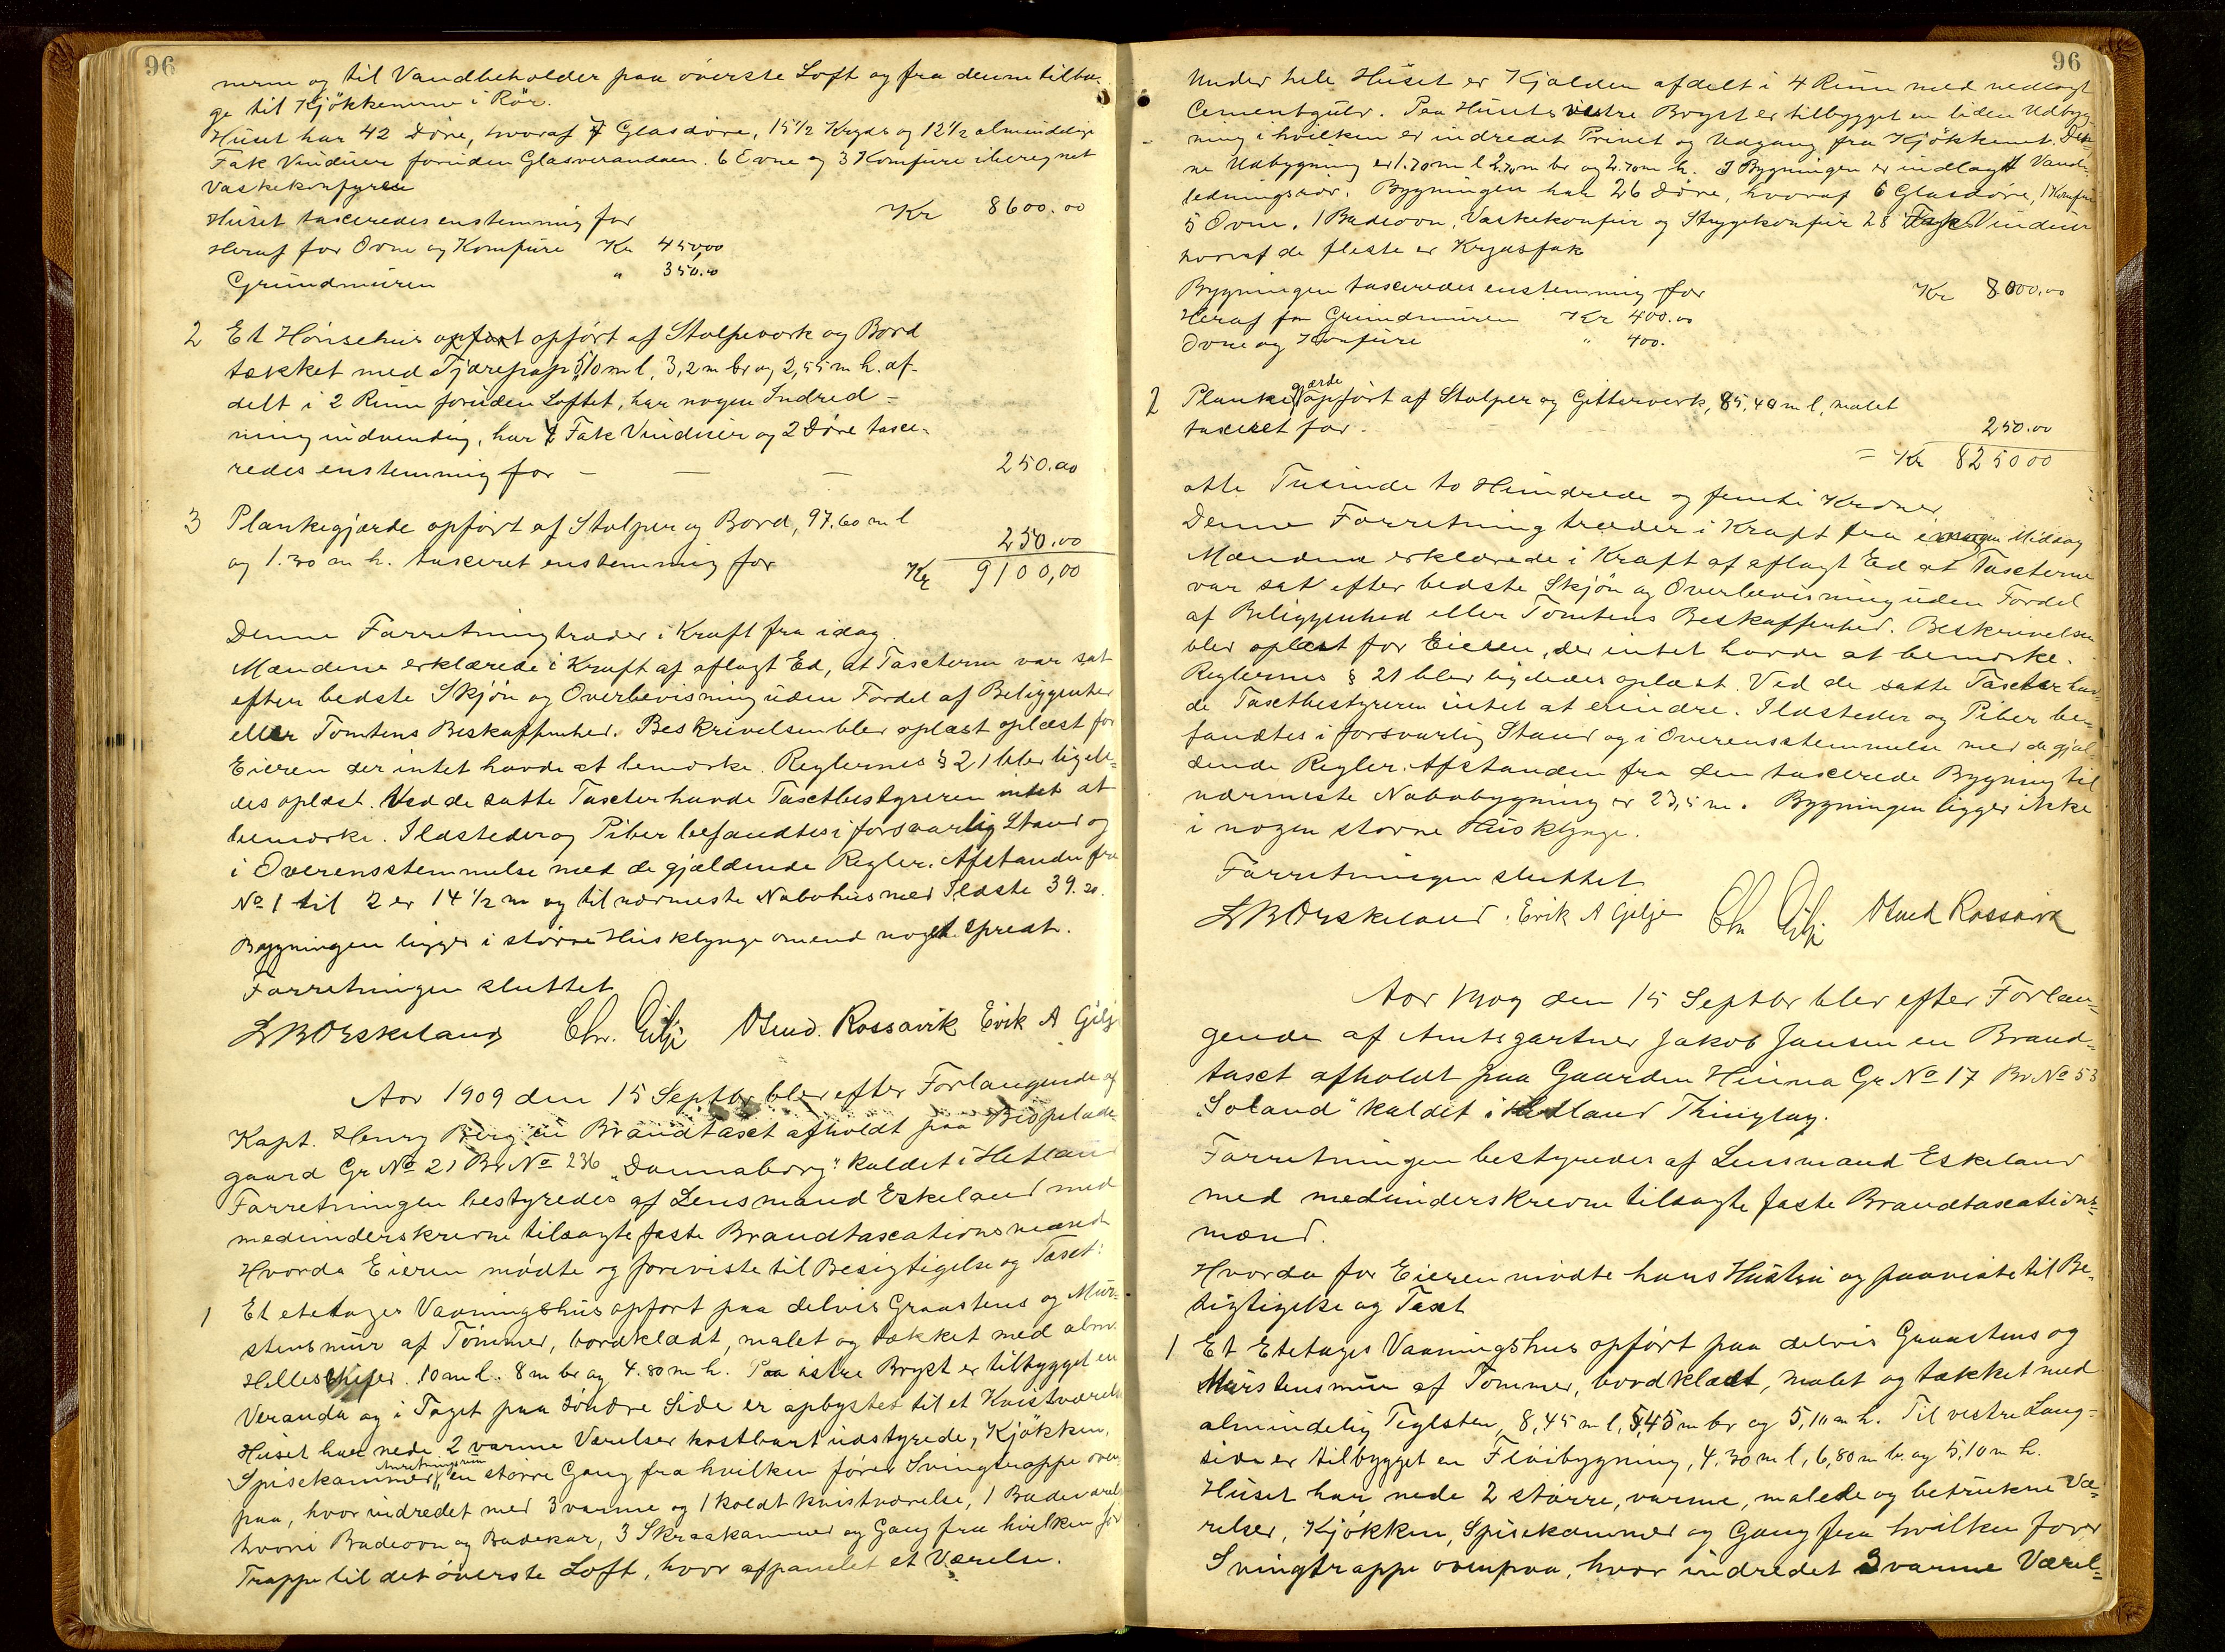 96
nerne og til Vandbeholder paa øverste Loft og fra denne tilba-
ge til Kjøkkenerne i Rør.
Huset har 42 Døre, hvoraf 7 Glasdøre, 15 1/2 Kryds og 12 1/2 almindelige
Fak Vinduer foruden Glasverandaen. 6 Ovne og 3 Komfure iberegnet
Vaskekomfyren
Huset taxeredes enstemmig for Kr 8600.00
Heraf for Ovne og Komfure Kr 450,00
Grundmuren " 350.00
2 Et Hønsehus opført af Stolpeverk og Bord
tækket med Tjærepap 5,10 m l, 3,2 m br og 2,55 m h. af-
delt i 2 Rum foruden Loftet, har nogen Indred=
ning indvendig, har 4 Fak Vinduer og 2 Døre taxe-
redes enstemmig for - - - 250.00
3 Plankegjærde opført af Stolper og Bord, 97.60 m l
og 1.30 m h. taxeret enstemmig for 250.00
Kr 9100,00
Denne Forretning træder i Kraft fra idag.
Mændene erklærede i Kraft af aflagt Ed, at Taxterne var sat
efter bedste Skjøn og Overbevisning uden Fordel af Beliggenhed
eller Tomtens Beskaffenhed. Beskrivelsen blev oplæst oplæst for
Eieren der intet havde at bemærke. Reglernes § 21 blev ligele=
des oplæst. Ved de satte Taxter havde Taxtbestyreren intet at
bemærke. Ildsteder og Piber befandtes i forsvarlig Stand og
i Overensstemmelse med de gjældende Regler. Afstanden fra
No 1 til 2 er 14 1/2 m og til nærmeste Nabohus med Ildste 39.20.
Bygningen ligger i større Husklynge omend noget spredt.
Forretningen sluttet
L B Orskeland Chr. Gilje Osmd. Rossavik Erik A Gilje
Aar 1909 den 15 Septbr blev efter Forlangende af
Kapt. Henry Berg en Brandtaxt afholdt paa Bispelade
gaard Gr No 21 Br No 236 "Dannaborg" kaldet i Hetland
Forretningen bestyredes af Lensmand Eskeland med
medunderskrevne tilsagte faste Brandtaxationsmænd
Hvorda Eieren mødte og foreviste til Besigtigelse og Taxt:
1 Et etetages Vaaningshus opført paa delvis Graastens og Mur-
stensmur af Tømmer, bordklædt, malet og tækket med alm.
Helleskifer. 10 m l. 8 m br og 4.80 m h. Paa østre Bryst er tilbygget en
Veranda og i Taget paa søndre Side er opbygget til et Kvistværelse
Huset har nede 2 varme Værelser kostbart udstyrede, Kjøkken,
Spisekammer, Anretningsrum en større Gang fra hvilken fører Svingtrappe oven
paa, hvor indredet med 3 varme og 1 koldt kvistværelse, 1 Badeværelse
hvori Badeovn og Badekar, 3 Skraakammer og Gang fra hvilken før
Trappe til det øverste Loft, hvor afpanelet et Værelse.
96
Under hele Huset er Kjælder afdelt i 4 Rum med nedlagt
Cementgulv. Paa Husets vestre Bryst er tilbygget en liden Udbyg-
ning i hvilken er indredet Privet og Udgang fra Kjøkkenet. Den-
ne Udbygning er 1.70 m l 2.70 m br og 2.70 m h. I Bygningen er indlagt Vand-
ledningsrør. Bygningen har 26 Døre, hvoraf 6 Glasdøre, 1 Komfur
5 Ovne, 1 Badeovn, Vaskekomfur og Strygekomfur 28 Fak Vinduer
hvoraf de fleste er Krydsfak
Bygningen taxeredes enstemmig for Kr 8000,00
Heraf for Grundmuren Kr 400.00
Ovne og Komfure " 400.
2 Plankegjærde opført af Stolper og Gitterverk, 85,40 m l, malet
taxeret for - 250.00
= Kr 8250 00
otte Tusinde to Hundrede og femti Kroner
Denne Forretning træder i Kraft fra imorgen Middag
Mændene erklærede i Kraft af aflagt Ed at Taxterne
var sat efter bedste Skjøn og Overbevisning uden Fordel
af Beliggenhed eller Tomtens Beskaffenhed. Beskrivelsen
blev oplæst for Eieren, der intet havde at bemærke.
Reglernes § 21 blev ligeledes oplæst. Ved de satte Taxter hav-
de Taxtbestyreren intet at erindre. Ildsteder og Piber be-
fandtes i forsvarlig Stand og i Overensstemmelse med de gjæl-
dende Regler. Afstanden fra den taxerede Bygning til
nærmeste Nabobygning er 23,5 m. Bygningen ligger ikke
i nogen større Husklynge.
Forretningen sluttet
L B Orskeland. Erik A Gilje Chr Gilje Osmd Rossavik
Aar 1909 den 15 Septbr blev efter Forlan-
gende af Amtsgartner Jakob Jansen en Brand-
taxt afholdt paa Gaarden Hinna Gr No 17 Br No 53
"Soland" kaldet i Hetland Thinglag.
Forretningen bestyredes af Lensmand Eskeland
med medunderskrevne tilsagte faste Brandtaxations-
mænd.
Hvorda for Eieren mødte hans Hustru og paaviste til Be-
sigtigelse og Taxt
1 Et Etetages Vaaningshus opført paa delvis Graastens og
Murstensmur af Tømmer, bordklædt, malet og tækket med
almindelig Teglsten, 8,45 m l, 5,45 m br og 5,10 m h. Til vestre Lang-
side er tilbygget en Fløibygning, 4.30 m l, 6,80 m br og 5,10 m h.
Huset har nede 2 større, varme, malede og betrukne Væ-
relser, Kjøkken, Spisekammer og Gang fra hvilken fører
Svingtrappe ovenpaa, hvor indredet 3 varme Værel-